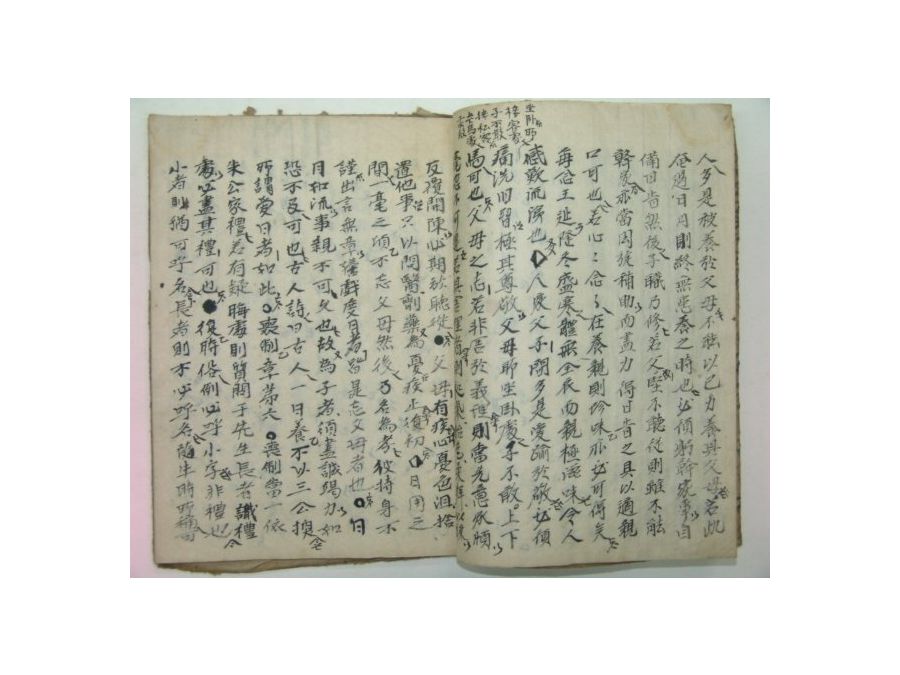 人多是被養於父母不能以己力養其父母若此
奄過日月則終無忠養之時也必須躬幹家事自
備甘旨然後子職乃修若父堅不聽從則雖不能
幹家亦當周旋補助而盡力得甘旨之具以適親
口可也若心心念念在養親則珍味亦必可得矣
每念王延隆冬盛寒體無全衣而親極滋味令人
感歎流涕也人家父子間多是愛踰於敬必須
痛洗旧習極其尊敬父母所坐臥處子不敢上下
焉可也父母之志若非害於義理則當先意承順
坐臥所
接客處
子不敢
接私客
上馬處
反覆開陳必期欲聽從●父母有疾心憂色沮捨
置他事只以問醫劑藥為憂疾止復初日用之
間一毫之頃不忘父母然後乃名為孝彼持身不
謹出言無章嬉戲度日者皆是忘父母者也日
月如流事親不可久也故為子者須盡誠竭力如
恐不及可也古人詩曰古人一日養不以三公換
所謂愛日者如此喪制章第六喪制當一依
朱公家禮若有疑晦處則質問于先生長者識禮
處必盡其禮可也●復時俗例必呼小字非禮也
小者則猶可呼名長者則不必呼名隨生時所稱